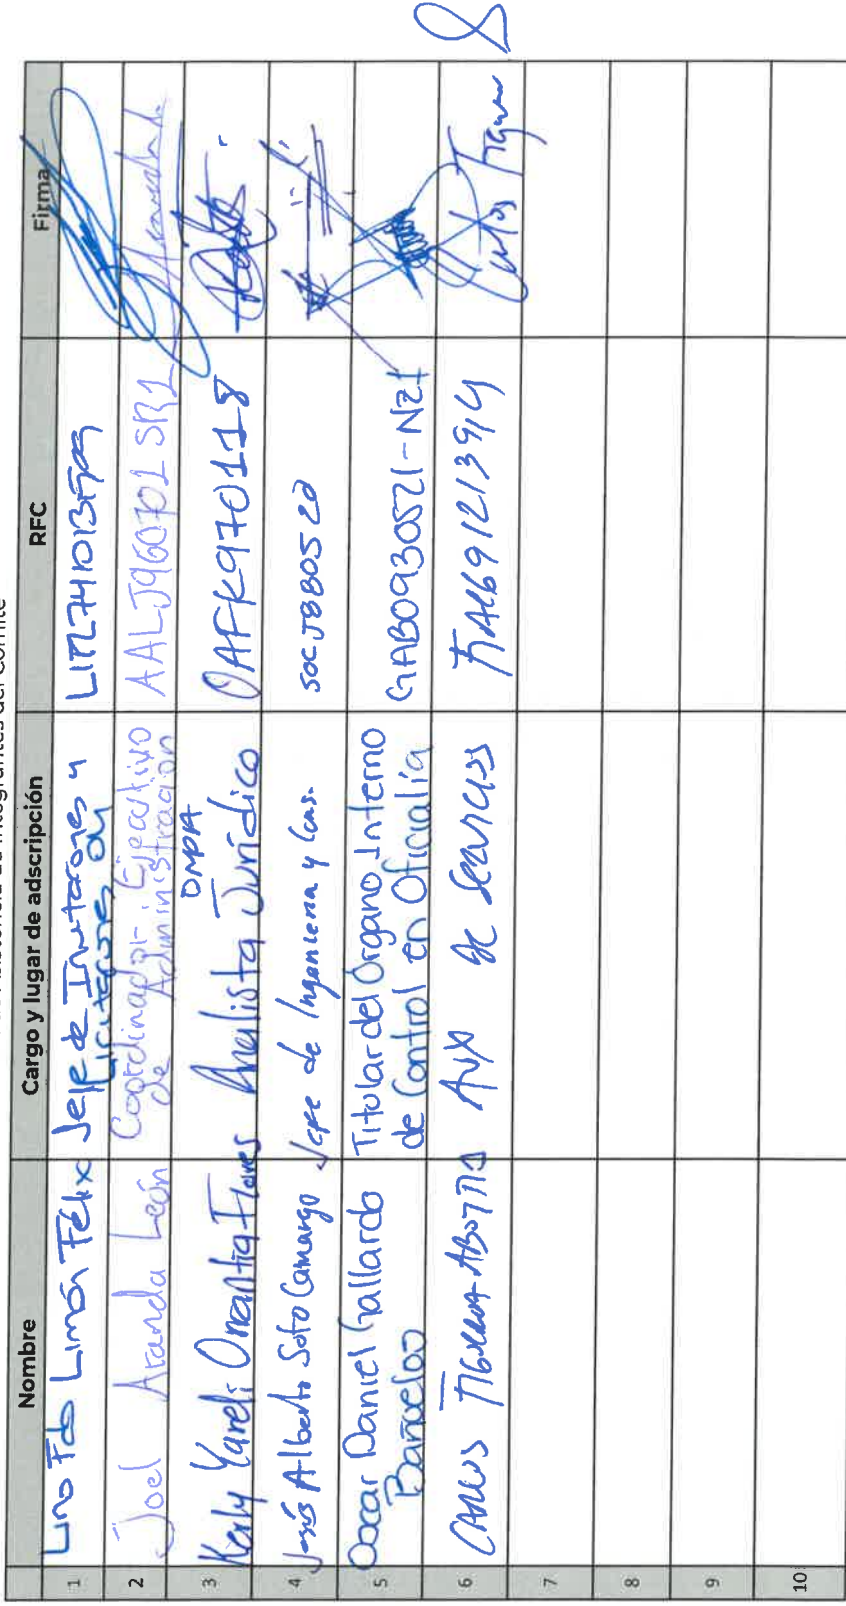 Nombre Cargo y lugar de adscripción RFC Firma
1 Lino Fdo Limón Félix Jefe de Invitaciones y Licitaciones OM
2 Joel Aranda León Coordinador Ejecutivo de Administración AALJ960701SR1
3 Karly Yareli Onantia Flores Analista Jurídico DMPA OAFK970118
4 Jesús Alberto Soto Camargo Jefe de Ingeniería y Cons. SOCJ880520
5 Oscar Daniel Gallardo Bañuelos Titular del Órgano Interno de Control en Oficialía GABO930521-NZ1
6 Aux de Servicios
Carlos Figueroa
7
8
9
10